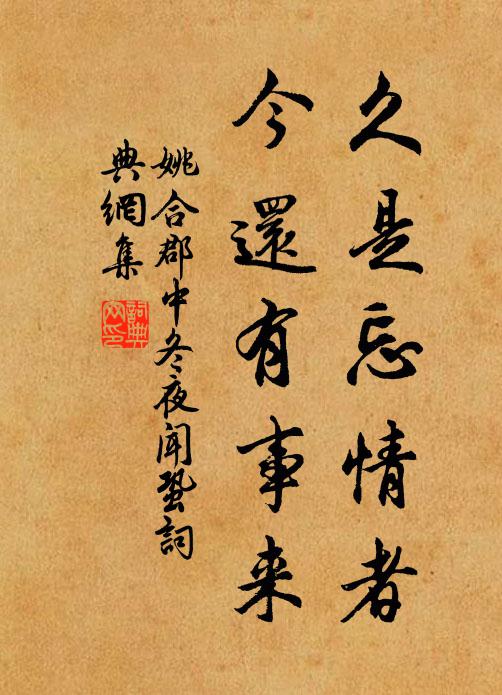 久是忘情者
今還有事来
姚合郡中冬夜聞蛩詞
典網集
詞典网印